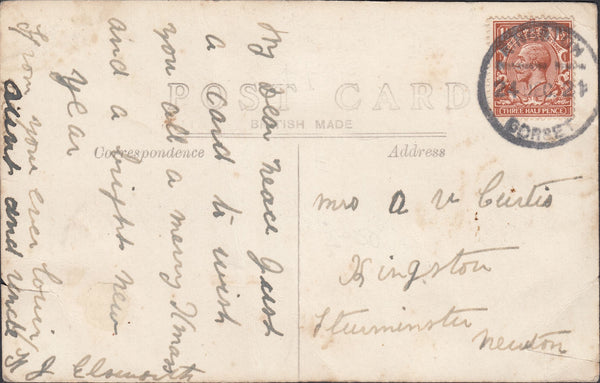 POST CARD
BRITISH MADE
Correspondence
Address
THREE HALFPENCE
DORSET
My Dear neace Just
a card to wish
you all a merry Xmas
and a bright new
year
From your ever loving
Aunt and Uncle
J Elsworth
Mrs A V Curtis
Kingston
Sturminster
Newton